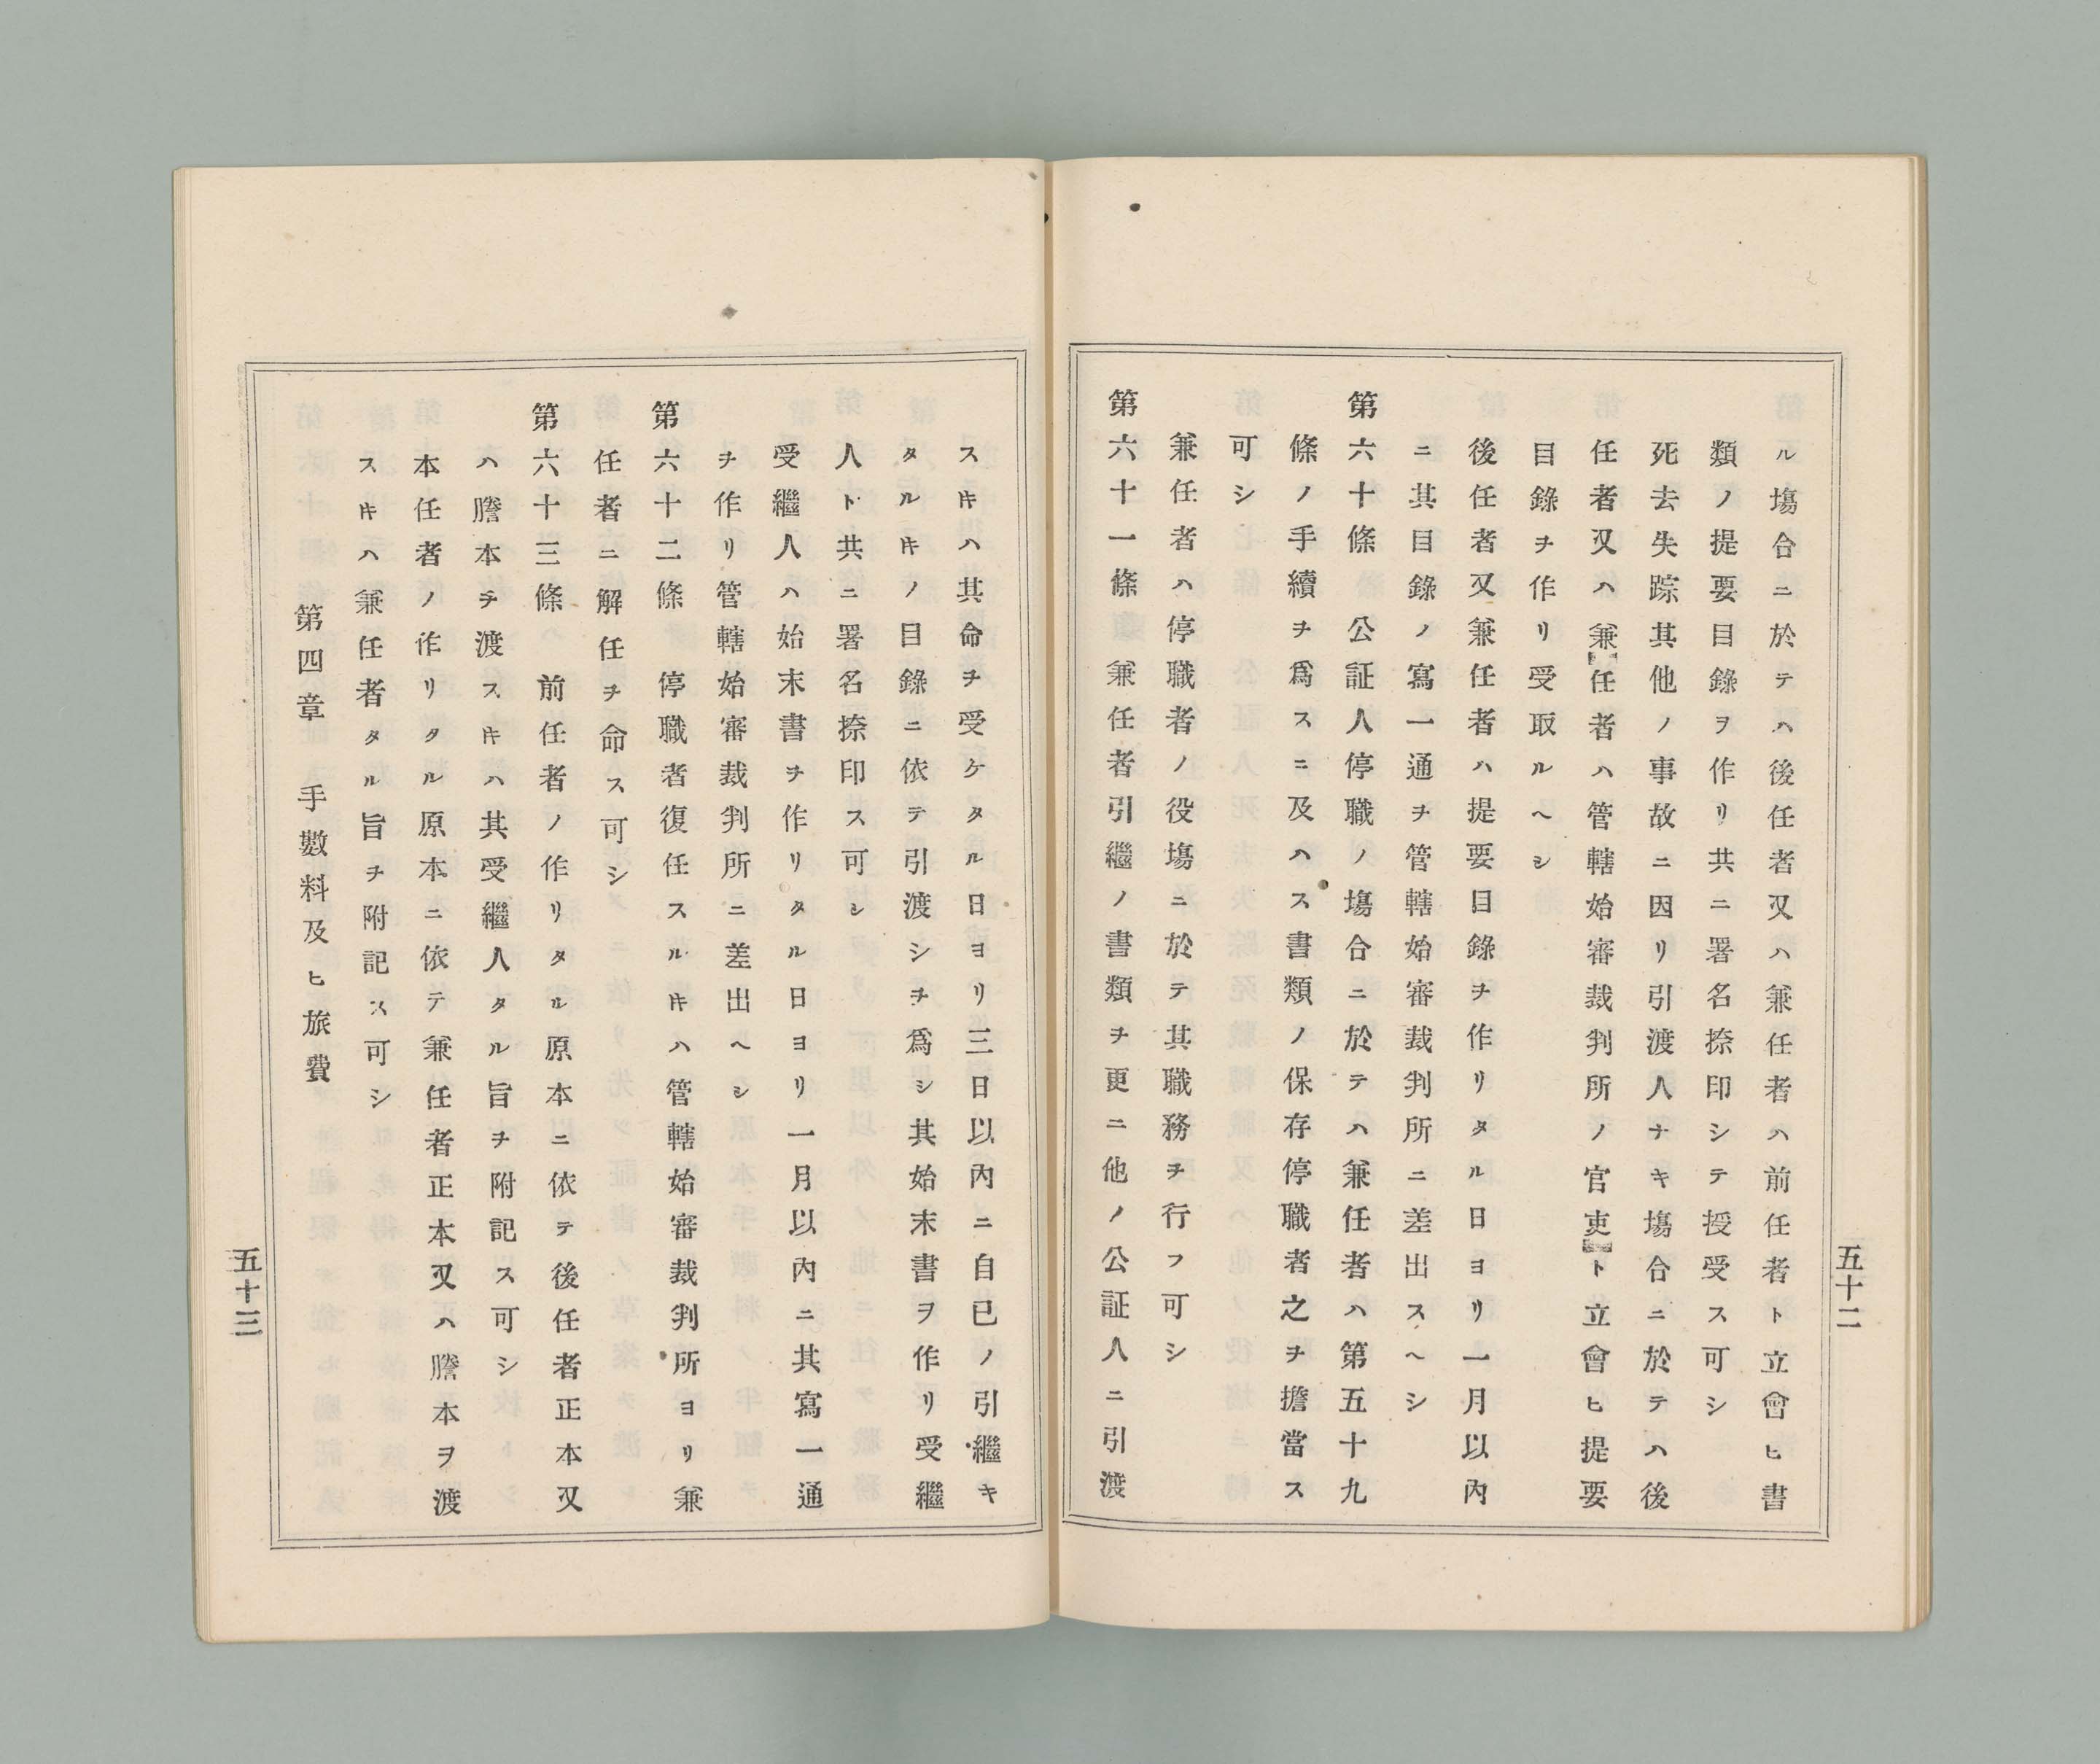 ル塲合ニ於テハ後任者又ハ兼任者ハ前任者ト立會ヒ書
類ノ提要目錄ヲ作リ共ニ署名捺印シテ授受ス可シ
死去失踪其他ノ事故ニ因リ引渡人ナキ塲合ニ於テハ後
任者又ハ兼任者ハ管轄始審裁判所ノ官吏ト立會ヒ提要
目錄ヲ作リ受取ルヘシ
後任者又兼任者ハ提要目錄ヲ作リタル日ヨリ一月以內
ニ其目錄ノ寫一通ヲ管轄始審裁判所ニ差出スヘシ
第六十條　公証人停職ノ塲合ニ於テハ兼任者ハ第五十九
條ノ手續ヲ爲スニ及ハス書類ノ保存停職者之ヲ擔當ス
可シ
兼任者ハ停職者ノ役塲ニ於テ其職務ヲ行フ可シ
第六十一條　兼任者引繼ノ書類ヲ更ニ他ノ公証人ニ引渡
五十二
スキハ其命ヲ受ケタル日ヨリ三日以內ニ自已ノ引繼キ
タルキノ目錄ニ依テ引渡シヲ爲シ其始末書ヲ作リ受繼
人ト共ニ署名捺印ス可シ
受繼人ハ始末書ヲ作リタル日ヨリ一月以內ニ其寫一通
ヲ作リ管轄始審裁判所ニ差出ヘシ
第六十二條　停職者復任スルキハ管轄始審裁判所ヨリ兼
任者ニ解任ヲ命ス可シ
第六十三條　前任者ノ作リタル原本ニ依テ後任者正本又
ハ謄本ヲ渡スキハ其受繼人タル旨ヲ附記ス可シ
本任者ノ作リタル原本ニ依テ兼任者正本又ハ謄本ヲ渡
スキハ兼任者タル旨ヲ附記ス可シ
第四章　手數料及ヒ旅費
五十三